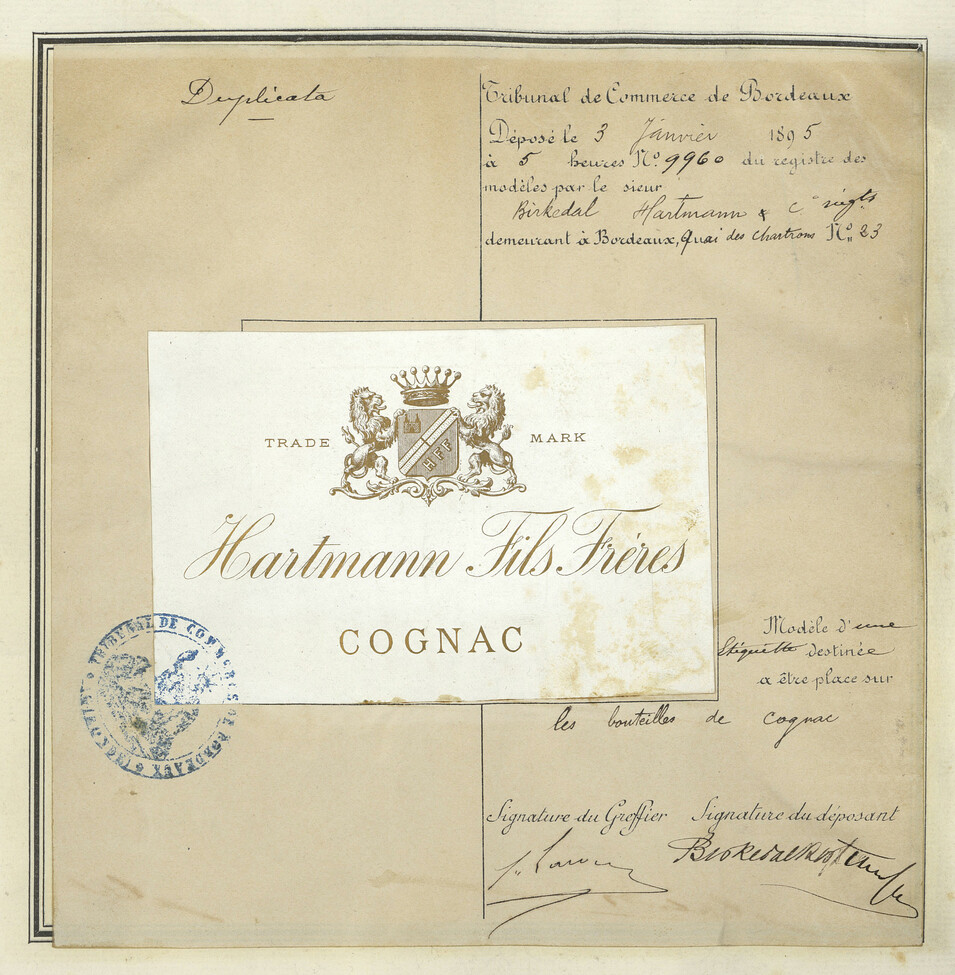 Duplicata
Tribunal de Commerce de Bordeaux
Déposé le 3 Janvier 1895
à 5 heures N° 9960 du registre des
modèles par le sieur
Birkedal Hartmann & C. négts
demeurant à Bordeaux, Quai des Chartrons N° 23
TRADE MARK
HFF
Hartmann Fils Fréres
COGNAC
TRIBUNAL DE COMMERCE DE BORDEAUX
Modèle d'une
étiquette destinée
a être place sur
les bouteilles de cognac
Signature du Greffier Signature du déposant